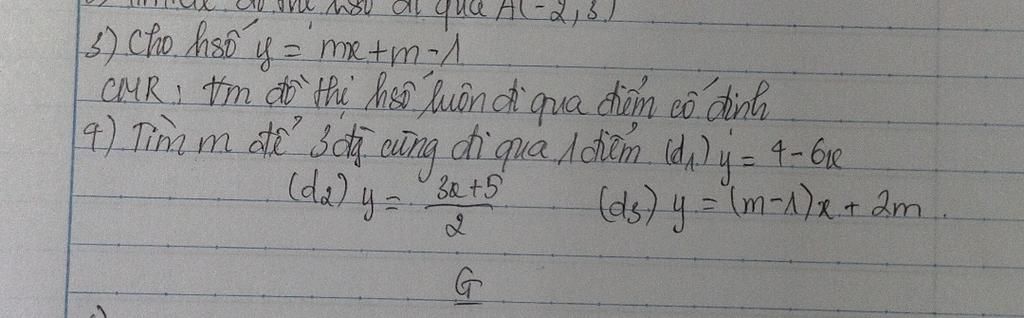 đi qua A(-2,3)
3) Cho hsố y = mx+m-1
CMR, ∀m đồ thị hsố luôn đi qua điểm cố định
4) Tìm m để 3đg cùng đi qua 1 điểm (d1) y = 4-6x
(d2) y = \frac{3x+5}{2} (d3) y = (m-1)x + 2m
G